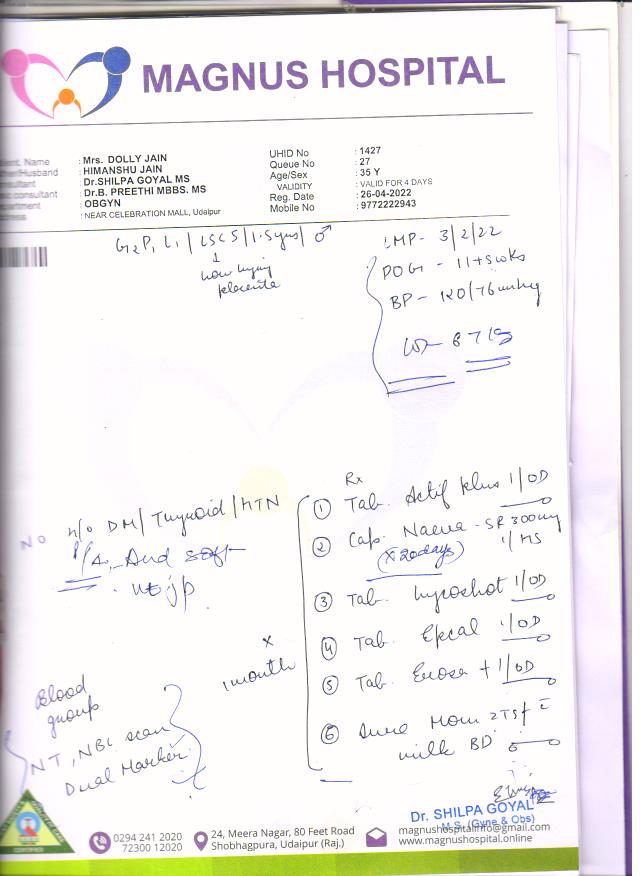 MAGNUS HOSPITAL
ient. Name : Mrs. DOLLY JAIN
ther/Husband : HIMANSHU JAIN
nsultant : Dr.SHILPA GOYAL MS
consultant : Dr.B. PREETHI MBBS. MS
partment : OBGYN
dress : NEAR CELEBRATION MALL, Udaipur
UHID No : 1427
Queue No : 27
Age/Sex : 35 Y
VALIDITY : VALID FOR 4 DAYS
Reg. Date : 26-04-2022
Mobile No : 9772222943
G2P1L1 / LSCS / 1.5yrs / ♂
↓
low lying
placenta
LMP - 3/2/22
POG - 11+5wks
BP - 120/76mmHg
Rx
① Tab. Actif Plus 1/OD
② Cap. - SR 300mg
(x 20days) 1/HS
③ Tab. Lycoshot 1/OD
④ Tab. 1/OD
⑤ Tab. + 1/OD
⑥ Mom 2TSF c̄
milk BD
NO H/O DM/Thyroid/HTN
P/A - Abd soft
x
1 month
Blood
group
NT, NBL scan
Dual Marker
Dr. SHILPA GOYAL
M.S. (Gyne & Obs)
0294 241 2020
72300 12020
24, Meera Nagar, 80 Feet Road
Shobhagpura, Udaipur (Raj.)
magnushospitalinfo@gmail.com
www.magnushospital.online